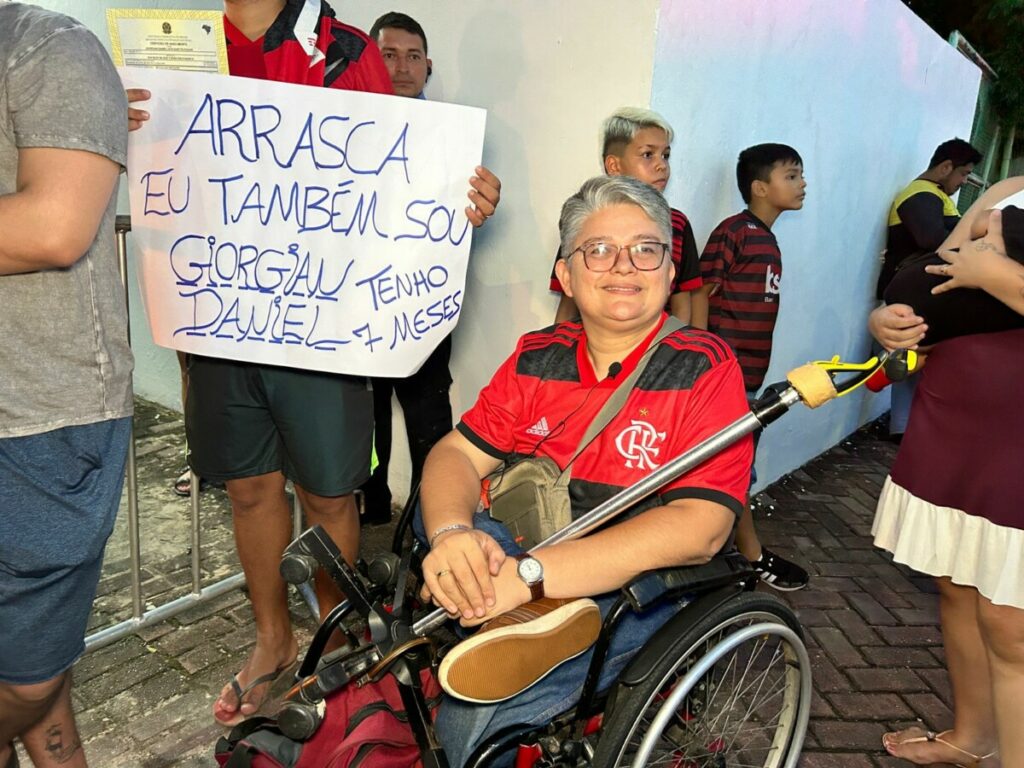 ARRASCA
EU TAMBÉM SOU
GIORGIAN
DANIEL
TENHO
7 MESES
adidas
CRF